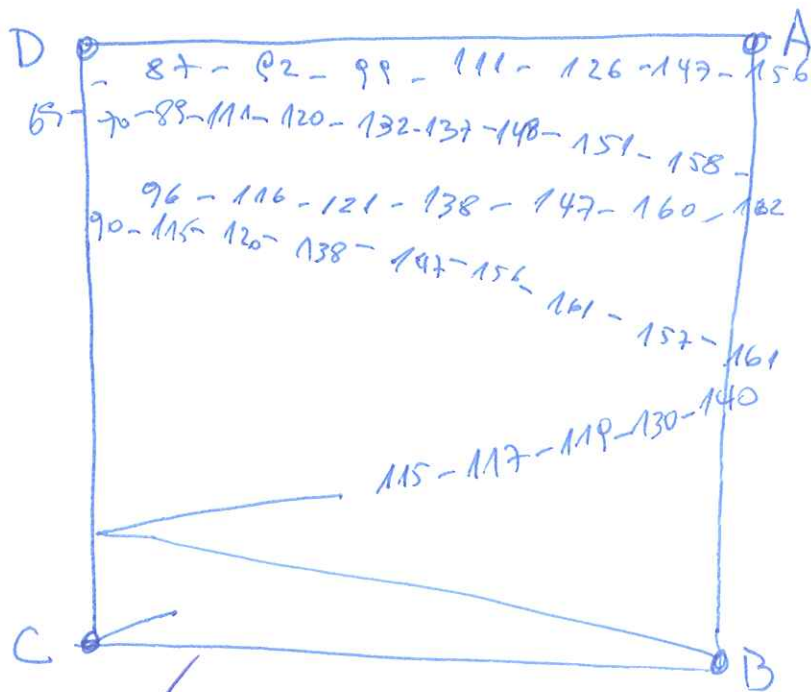 D A
- 87 - 92 - 99 - 111 - 126 - 147 - 156
65 - 70 - 89 - 111 - 120 - 132 - 137 - 148 - 151 - 158 -
96 - 116 - 121 - 138 - 147 - 160 - 162
90 - 115 - 120 - 138 - 147 - 156 - 161 - 157 - 161
115 - 117 - 119 - 130 - 140
C B